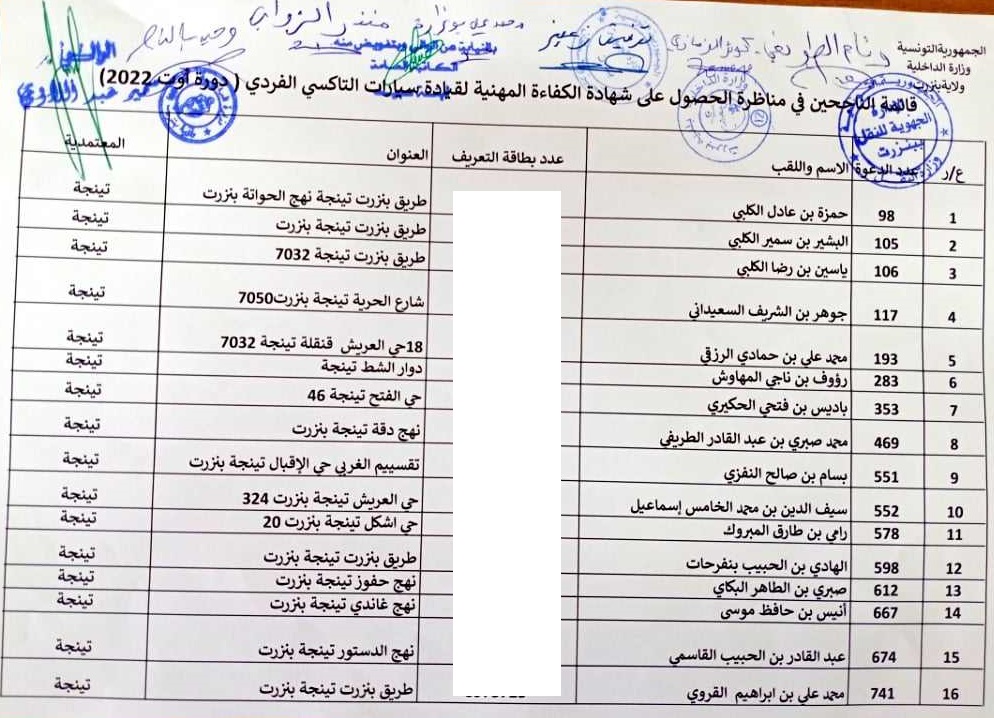 الجمهورية التونسية
وزارة الداخلية
ولاية بنزرت
بالنيابة عن الوالي وبتفويض منه
الكاتبة العامة
الوالي
قائمة الناجحين في مناظرة الحصول على شهادة الكفاءة المهنية لقيادة سيارات التاكسي الفردي ( دورة أوت 2022)
الجهوية للنقل
ببنزرت
ع/ر عدد الدعوة الاسم واللقب عدد بطاقة التعريف العنوان المعتمدية
1 98 حمزة بن عادل الكلبي طريق بنزرت تينجة نهج الحواتة بنزرت تينجة
2 105 البشير بن سمير الكلبي طريق بنزرت تينجة بنزرت تينجة
3 106 ياسين بن رضا الكلبي طريق بنزرت تينجة 7032 تينجة
4 117 جوهر بن الشريف السعيداني شارع الحرية تينجة بنزرت7050 تينجة
5 193 محمد علي بن حمادي الرزقي 18حي العريش قنقلة تينجة 7032 تينجة
6 283 رؤوف بن ناجي المهاوش دوار الشط تينجة تينجة
7 353 باديس بن فتحي الحكيري حي الفتح تينجة 46 تينجة
8 469 محمد صبري بن عبد القادر الطريفي نهج دقة تينجة بنزرت تينجة
9 551 بسام بن صالح النفزي تقسييم الغربي حي الإقبال تينجة بنزرت تينجة
10 552 سيف الدين بن محمد الخامس إسماعيل حي العريش تينجة بنزرت 324 تينجة
11 578 رامي بن طارق المبروك حي اشكل تينجة بنزرت 20 تينجة
12 598 الهادي بن الحبيب بنفرحات طريق بنزرت تينجة بنزرت تينجة
13 612 صبري بن الطاهر البكاي نهج حفوز تينجة بنزرت تينجة
14 667 أنيس بن حافظ موسى نهج غاندي تينجة بنزرت تينجة
15 674 عبد القادر بن الحبيب القاسمي نهج الدستور تينجة بنزرت تينجة
16 741 محمد علي بن ابراهيم القروي طريق بنزرت تينجة بنزرت تينجة